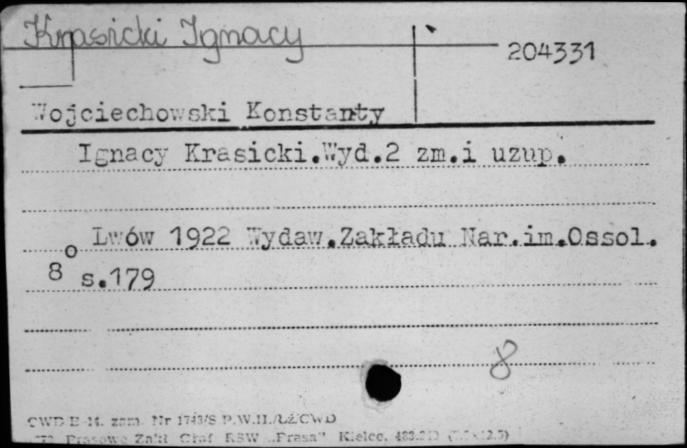 Krasicki Ignacy
204331
Wojciechowski Konstanty
Ignacy Krasicki.Wyd.2 zm.i uzup.
Lwów 1922 Wydaw.Zakładu Nar.im.Ossol.
8° s.179
8
CWD E-14. zam. Nr 1743/S P.W.H./ŁŻ/CWD
Prasowe Zakł. Graf. RSW „Prasa" Kielce.